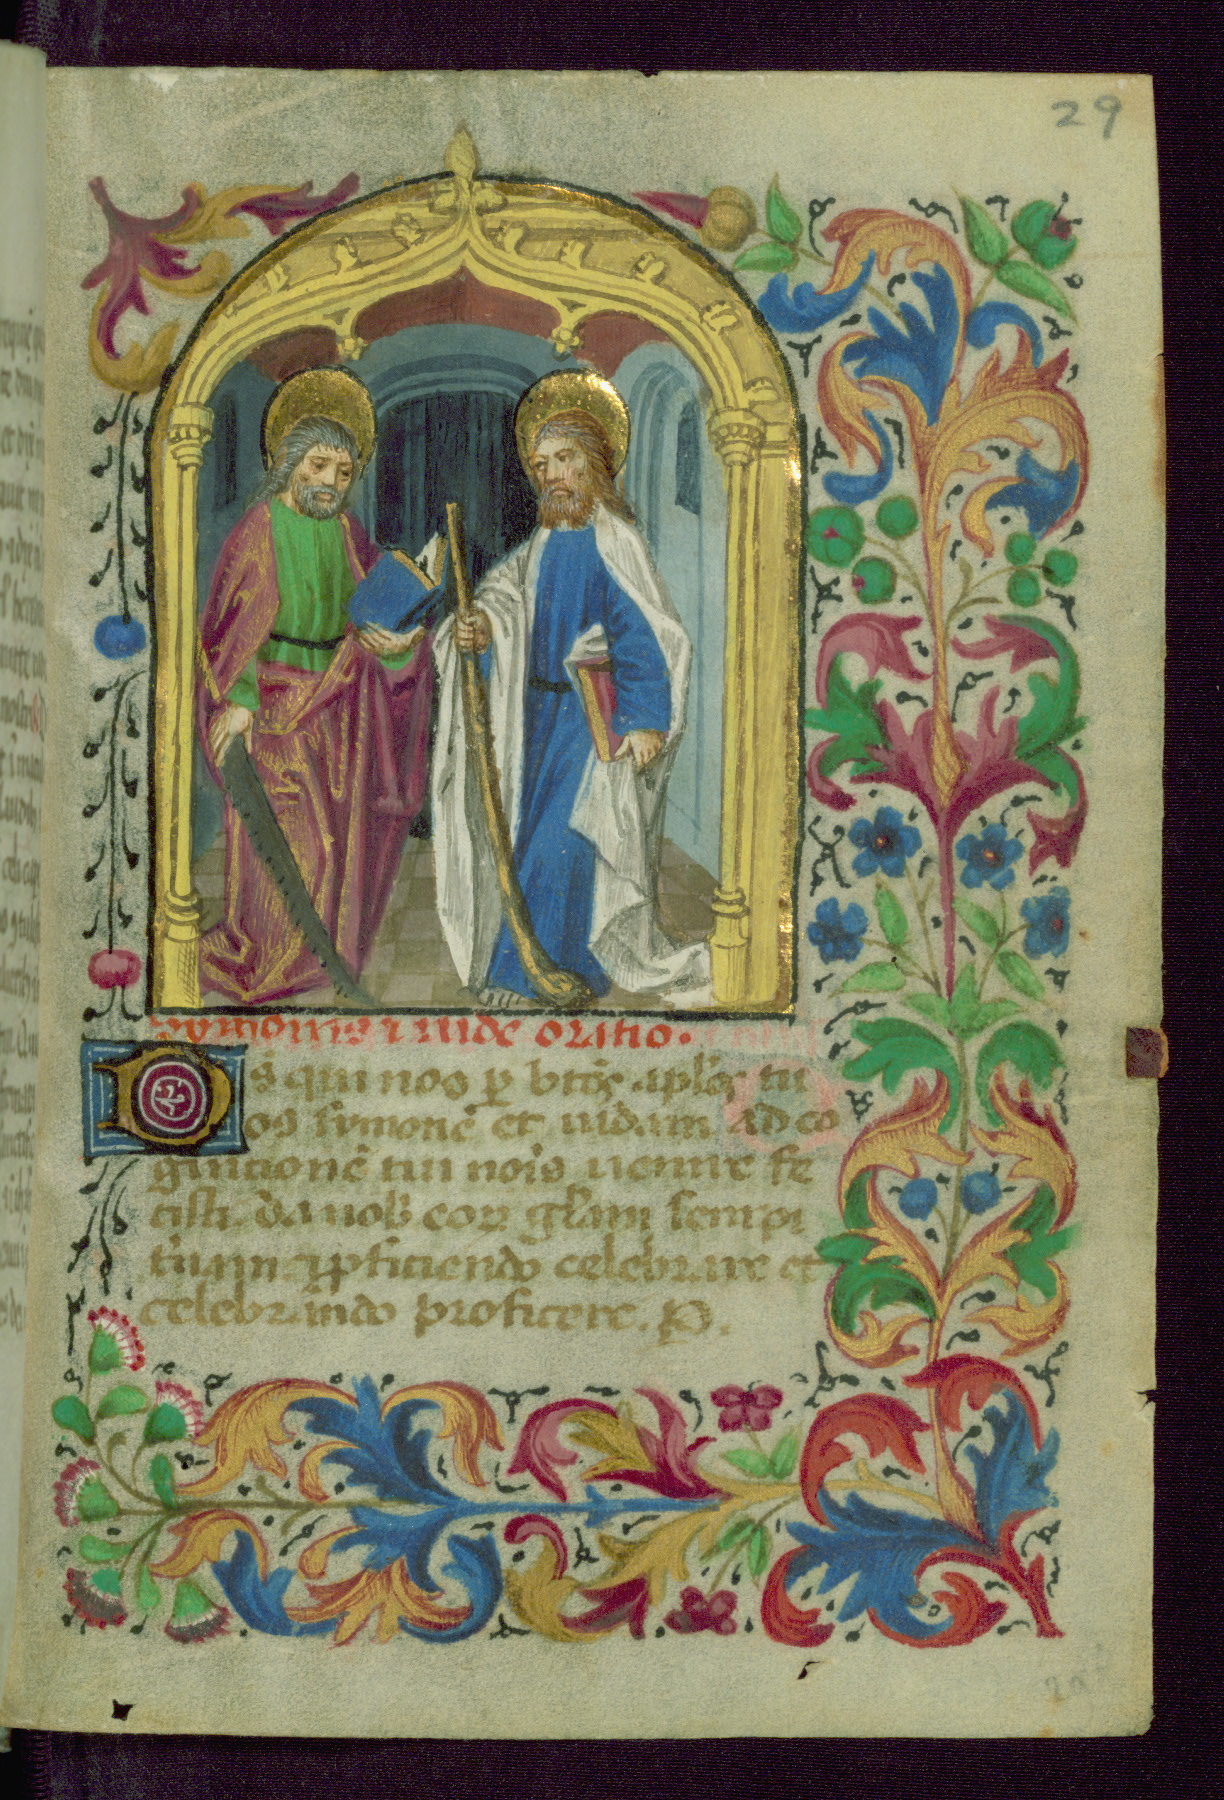 29
Symonis et iude oratio.
Ds qui nos p btōs aplōs tu
os symonē et iudam ad co
gnitionē tui nois uenire fe
cisti da nob eor gliam sempi
tnam et pficiendo celebrare et
celebrando proficere. P.